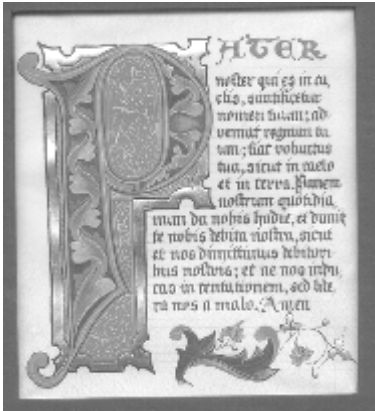 PATER
noster qui es in cæ,
elis, sanctificetur
nomen tuum; ad,
veniat regnum tu,
um; fiat voluntas
tua, sicut in caelo
et in terra. Panem
nostrum quotidia,
num da nobis hodie, et dimit,
te nobis debita nostra, sicut
et nos dimittimus debitori,
bus nostris; et ne nos indu,
cas in tentationem, sed libe,
ra nos a malo. Amen